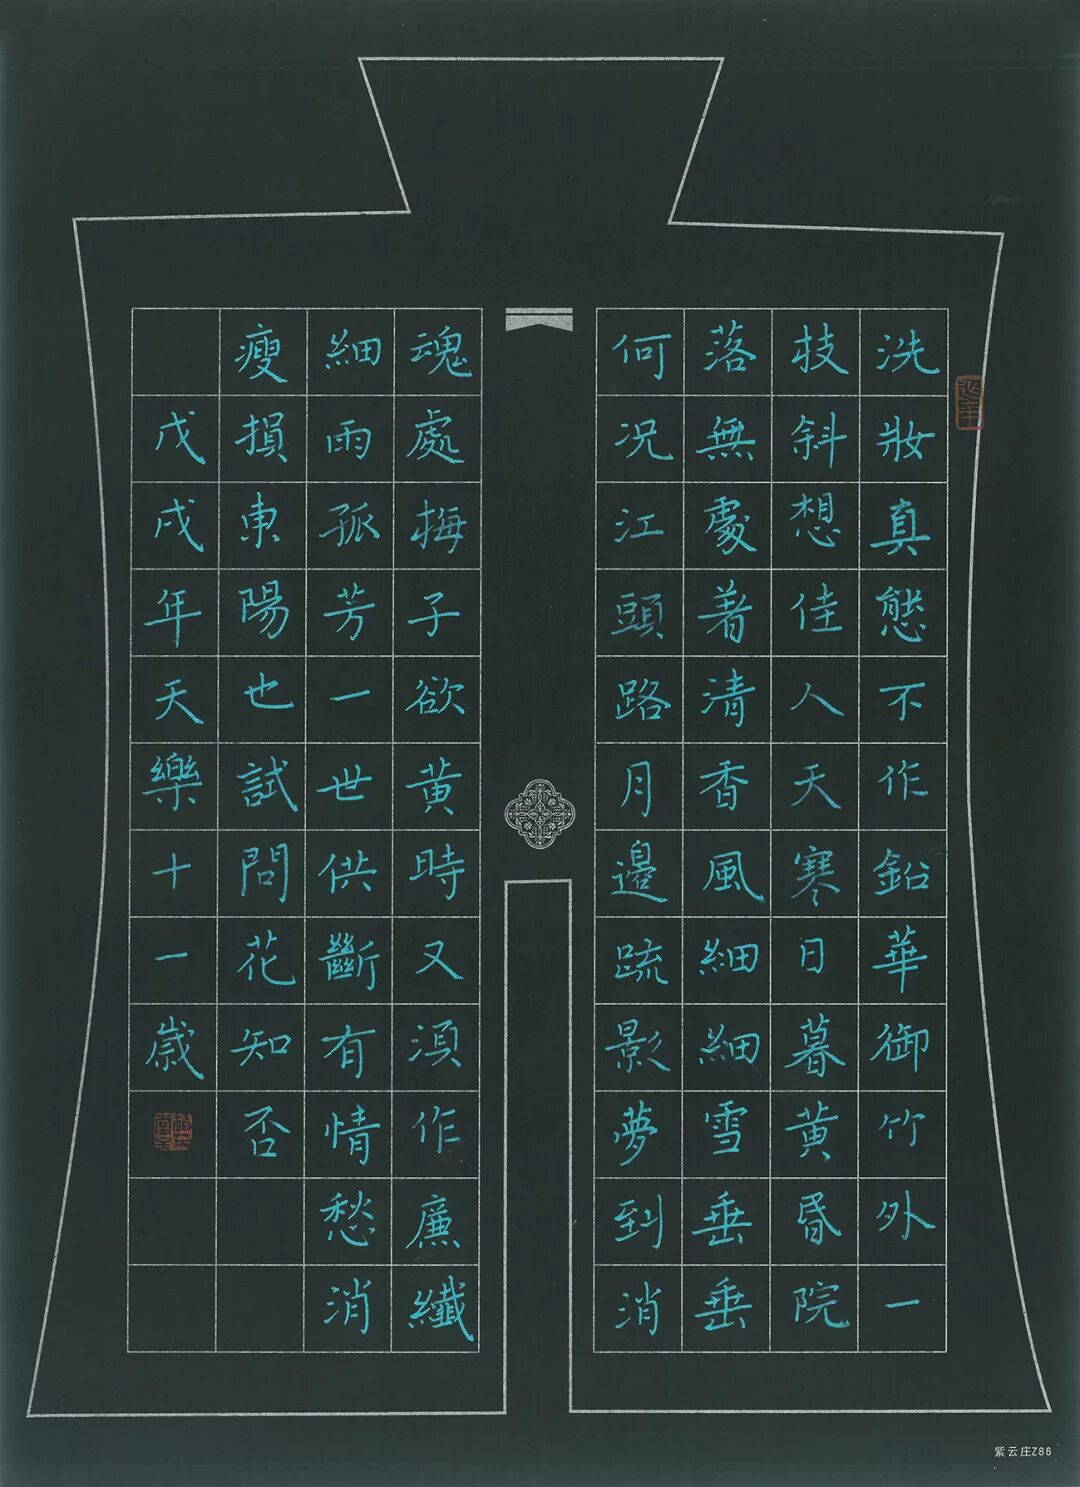 洗妝真態不作鉛華御竹外一
枝斜想佳人天寒日暮黃昏院
落無處著清香風細細雪垂垂
何況江頭路月邊疏影夢到消
魂處梅子欲黃時又須作廉纖
細雨孤芳一世供斷有情愁消
瘦損東陽也試問花知否
戊戌年天樂十一歲
紫云庄Z86